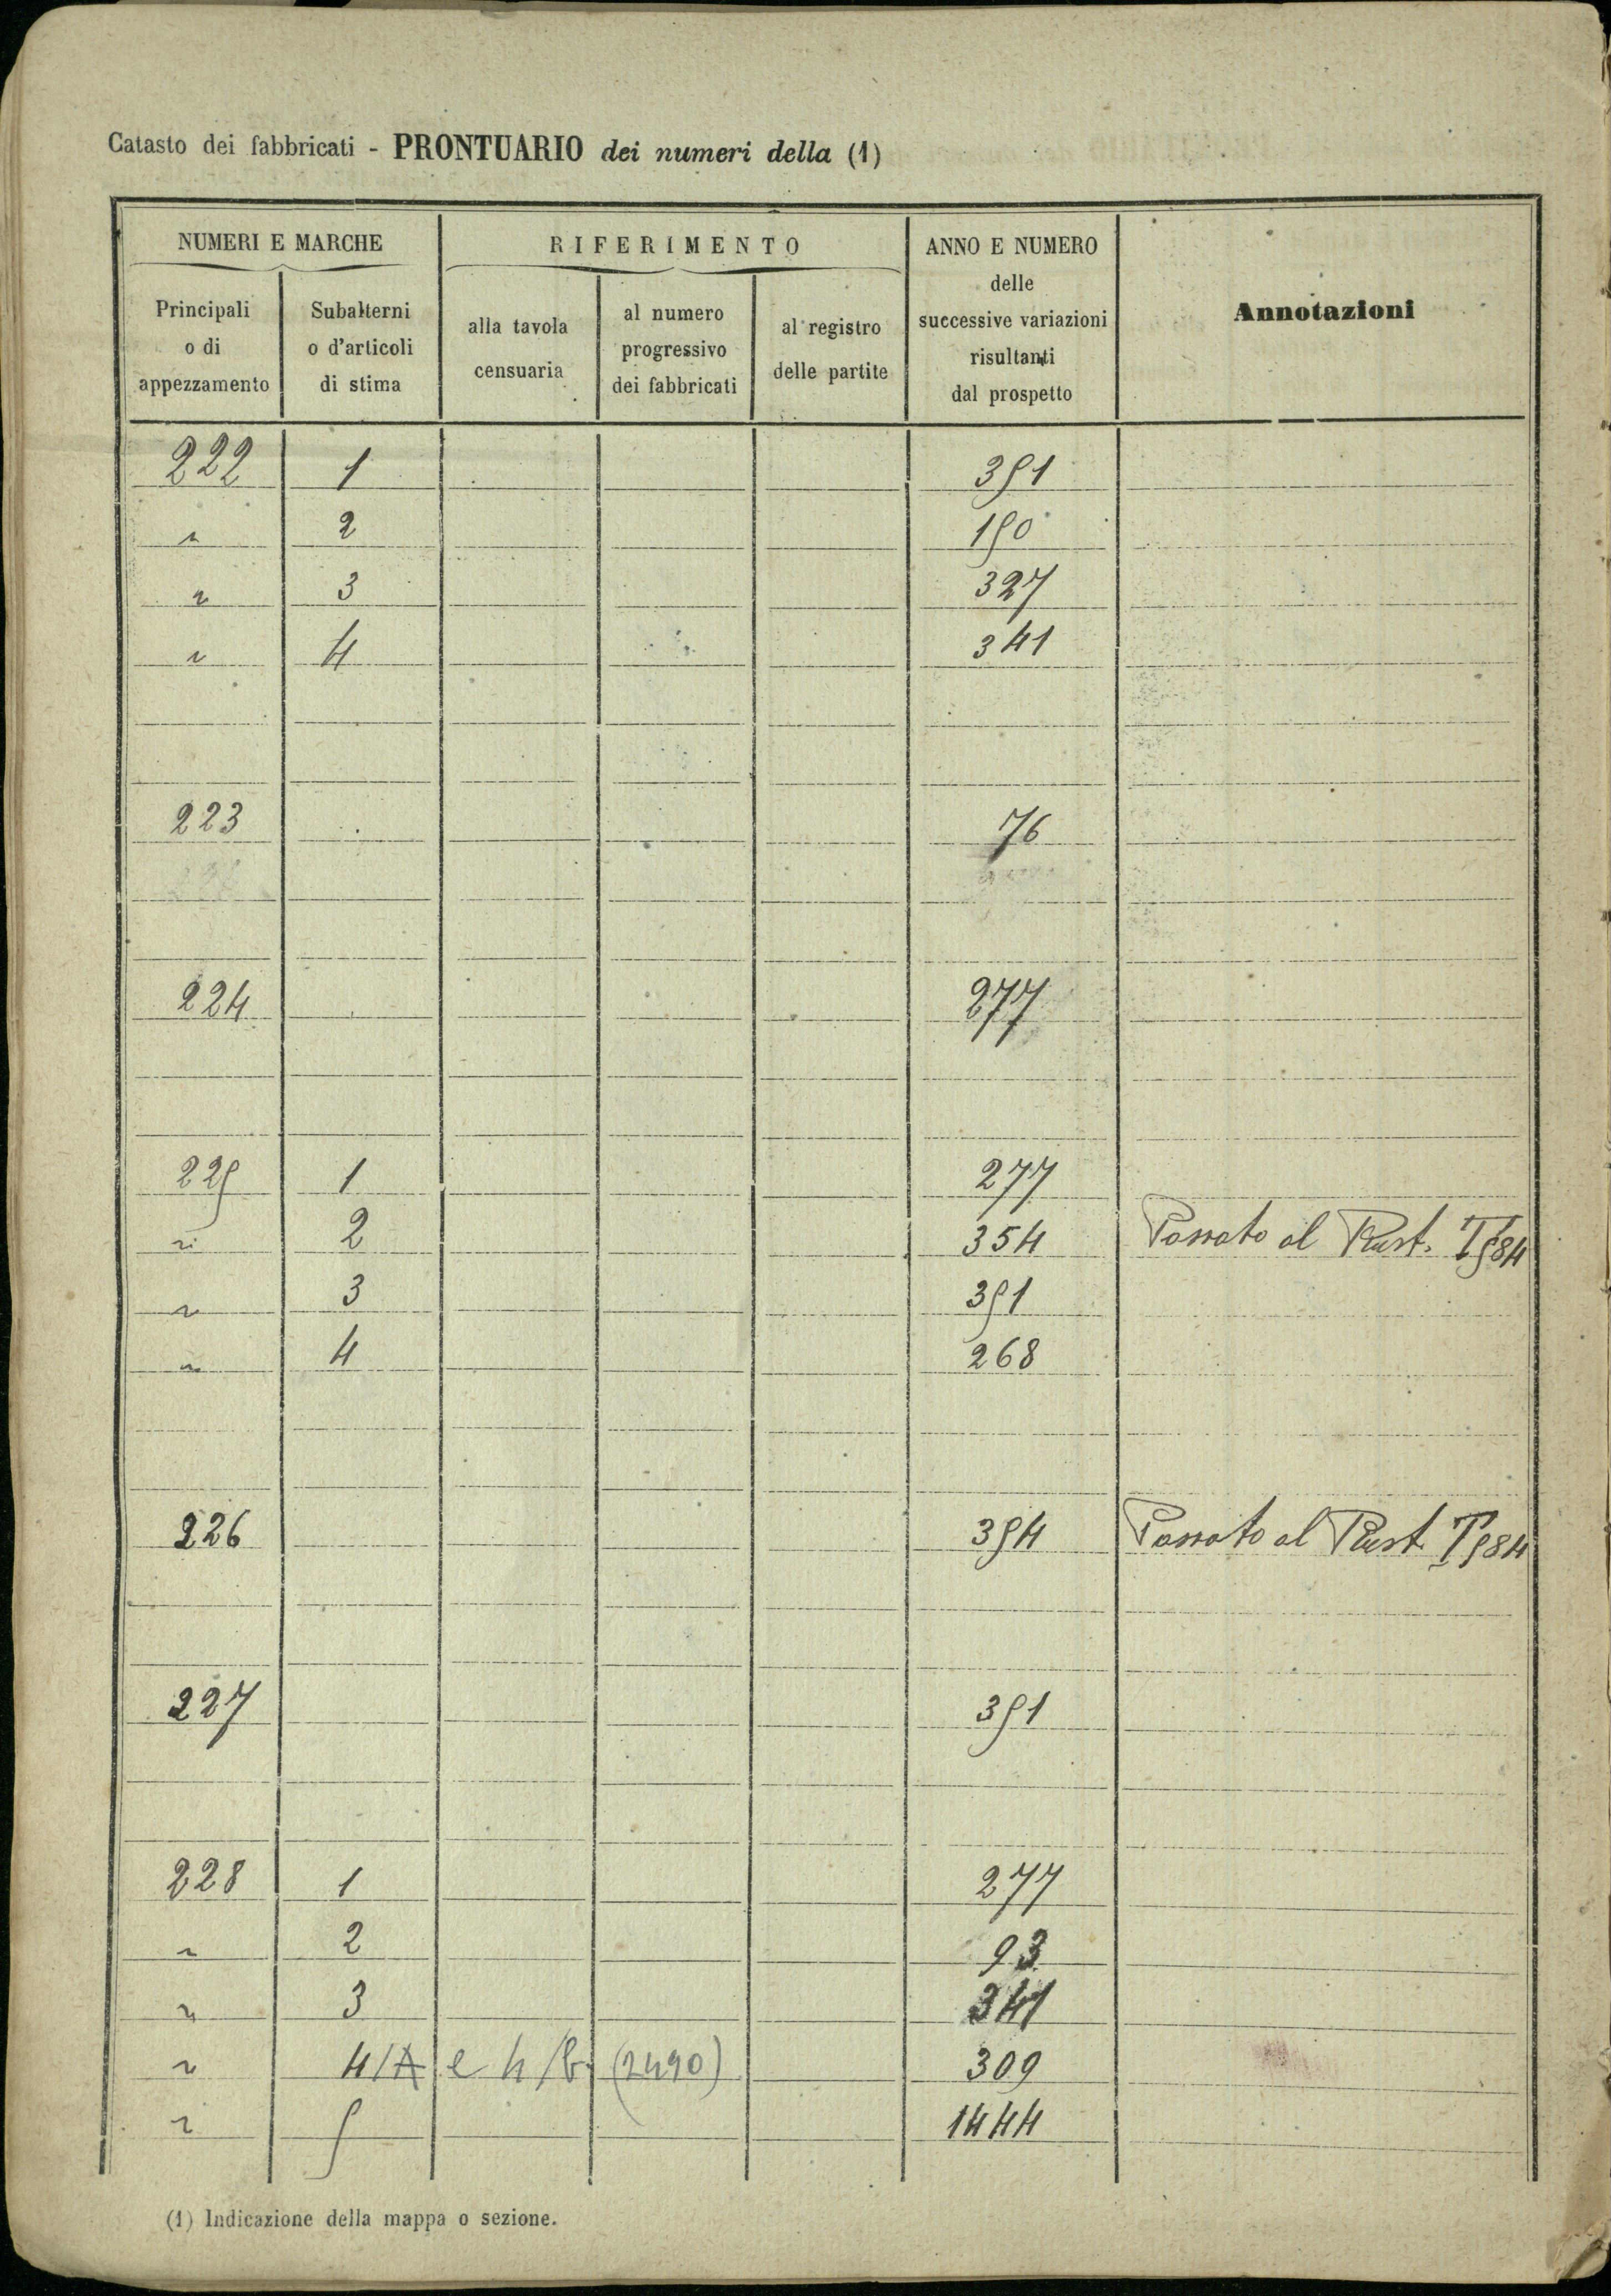 Catasto dei fabbricati - PRONTUARIO dei numeri della (1)
NUMERI E MARCHE
RIFERIMENTO
ANNO E NUMERO
delle
successive variazioni
risultanti
dal prospetto
Annotazioni
Principali
o di
appezzamento
Subalterni
o d'articoli
di stima
alla tavola
censuaria
al numero
progressivo
dei fabbricati
al registro
delle partite
222 1 351
" 2 150
" 3 327
" 4 341
223 76
224 277
225 1 277
" 2 354 Passato al Rust. T 584
" 3 351
" 4 268
226 354 Passato al Rust. T 584
227 351
228 1 277
" 2 93
" 3 341
" 4/A e 4/b (2490) 309
" 5 1444
(1) Indicazione della mappa o sezione.